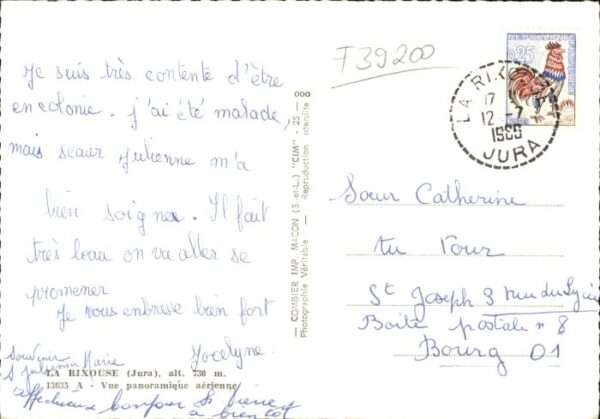 Je suis très contente d'être
en colonie. j'ai été malade,
mais seaur Julienne m'a
bien soignee. Il fait
très beau on va aller se
promener
Je vous enbrese bien fort
Jocelyne
Souvenir
Marie
LA RIXOUSE (Jura), alt. 730 m.
13035 A - Vue panoramique aérienne
affectueux bonjour
a bientôt
000
— COMBIER IMP. MACON (S.-et-L.) "CIM" - 25 —
Photographie Véritable — Reproduction interdite
F39200
0,25
LA RIXOUSE
17 H
12 -7
JURA
Sœur Catherine
tu Tour
St Joseph 3 rue du Lycée
Boite postale n 8
Bourg 01